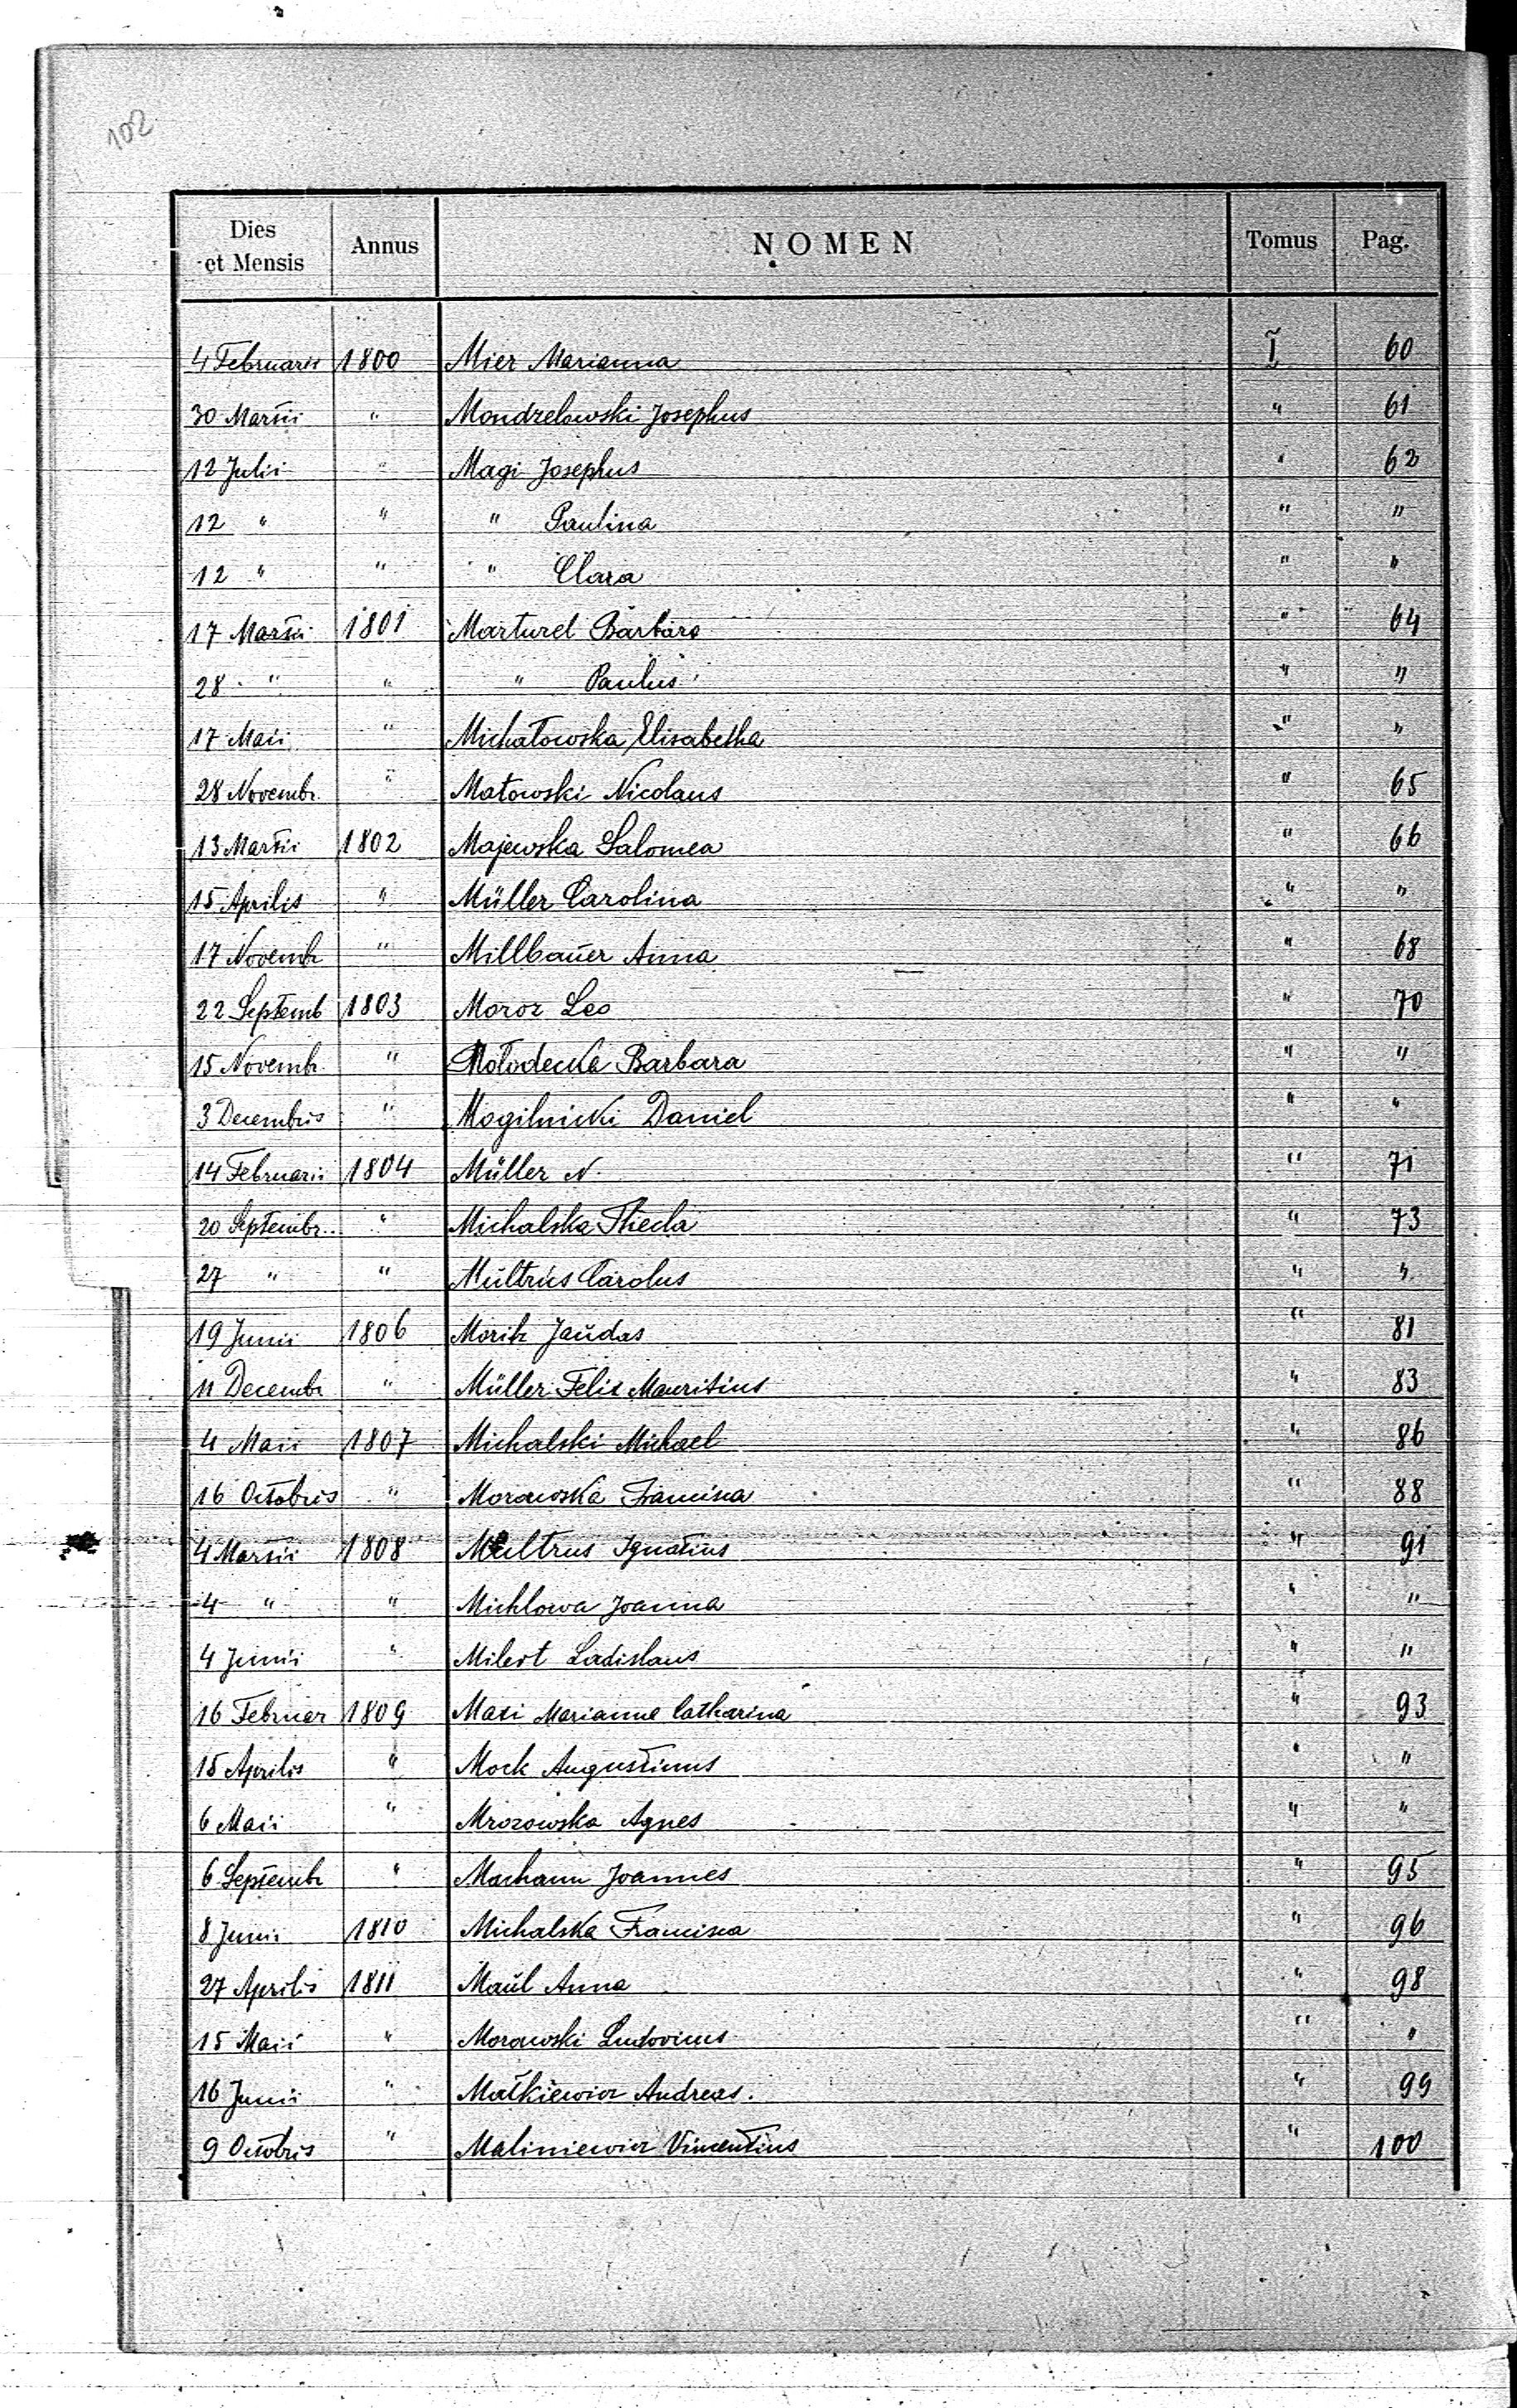 102
Dies et Mensis Annus NOMEN Tomus Pag.
4 Februarii 1800 Mier Marianna I 60
30 Martii " Mondzelowski Josephus " 61
12 Julii " Magi Josephus " 62
12 " " " Paulina " "
12 " " " Clara " "
17 Martii 1801 Marturel Barbara " 64
28 " " " Paulus " "
17 Maii " Michałowska Elisabetha " "
28 Novembr. " Matowski Nicolaus " 65
13 Martii 1802 Majewska Salomea " 66
15 Aprilis " Müller Carolina " "
17 Novembr " Millbaŭer Anna " 68
22 Septemb 1803 Moroz Leo " 70
15 Novembr. " Mołodecka Barbara " "
3 Decembris " Mogilnicki Daniel " "
14 Februarii 1804 Müller N. " 71
20 Septembr. " Michalska Thecla " 73
27 " " Mültrus Carolus " "
19 Junii 1806 Morik Jaŭdas " 81
11 Decembr " Müller Felix Mauritius " 83
4 Maii 1807 Michalski Michael " 86
16 Octobris " Morawska Francisca " 88
4 Martii 1808 Multrus Ignatius " 91
4 " " Michlowa Joanna " "
4 Junii " Milert Ladislaus " "
16 Februar 1809 Maxi Marianna Catharina " 93
15 Aprilis " Mock Augustinus " "
6 Maii " Mrozowska Agnes " "
6 Septembr " Machann Joannes " 95
8 Junii 1810 Michalska Francisca " 96
27 Aprilis 1811 Maŭl Anna " 98
15 Maii " Morawski Ludovicus " "
16 Junii " Małkiewicz Andreas. " 99
9 Octobris " Maliniewicz Vincentius " 100